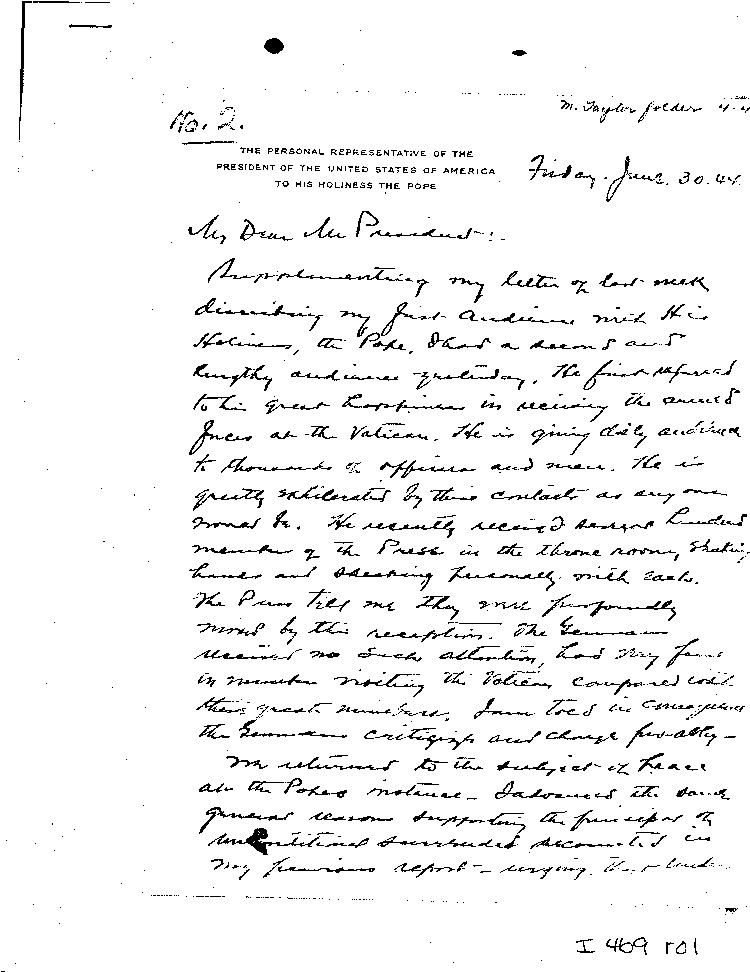 M. Taylor folder 4-4
No. 2.
THE PERSONAL REPRESENTATIVE OF THE
PRESIDENT OF THE UNITED STATES OF AMERICA
TO HIS HOLINESS THE POPE
Friday. June. 30. 44.
My Dear Mr President:.
Supplementing my letter of last week
describing my first audience with His
Holiness, the Pope, I had a second and
lengthy audience yesterday. He first referred
to his great happiness in receiving the armed
forces at the Vatican. He is giving daily audience
to thousands of officers and men. He is
greatly exhilerated by these contacts as any one
would be. He recently received several hundred
member of the Press in the throne room, shaking
hands and speaking personally with each.
The Press tell me they were profoundly
moved by this reception. The Germans
received no such attention, had very few
in number visiting the Vatican compared with
their great numbers. I am told in consequence
the Germans criticize and charge
We returned to the subject of Peace
at the Popes instance - I advanced the same
general reasons supporting the principal of
unconditional surrender recounted in
my previous report - urging that
I 469 r01